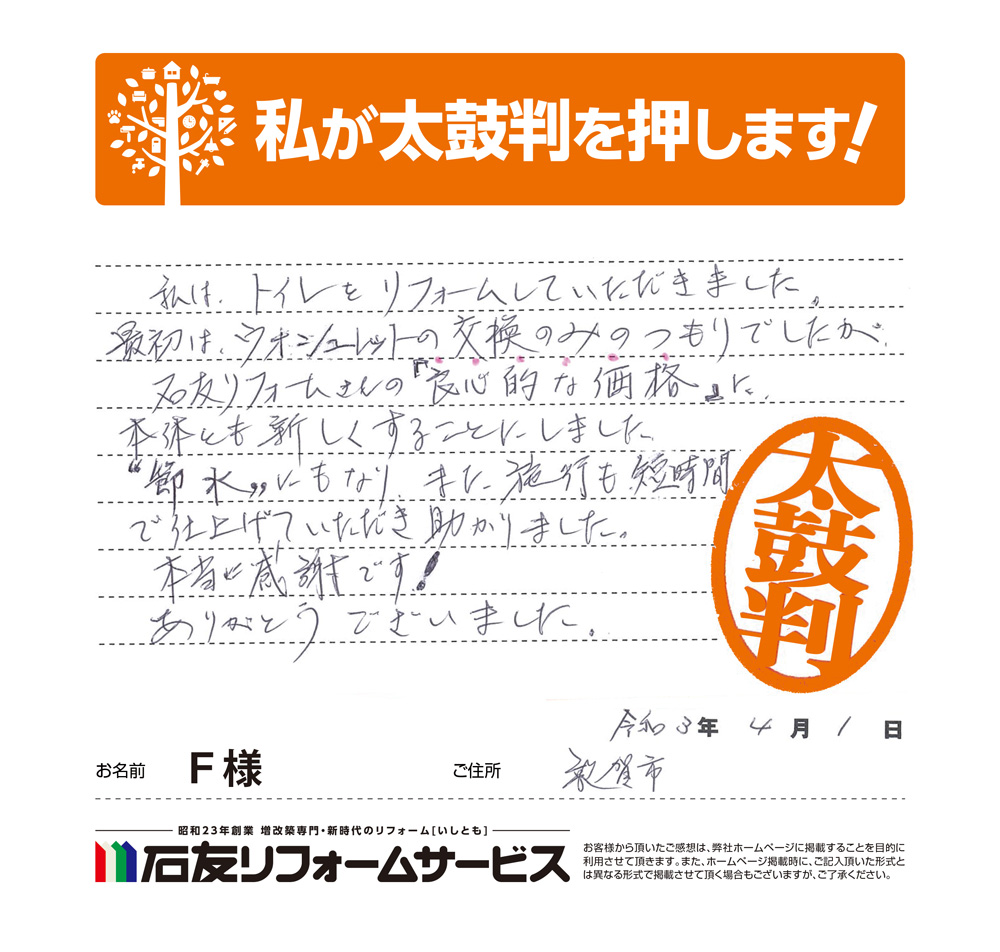 私が太鼓判を押します!
私は、トイレをリフォームしていただきました。
最初は、ウオシュレットの交換のみのつもりでしたが、
石友リフォームさんの『良心的な価格』に、
本体とも新しくすることにしました。
“節水„にもなり、また施行も短時間
で仕上げていただき助かりました。
本当に感謝です!
ありがとうございました。
太鼓判
令和3年 4月 1日
お名前 F様 ご住所 敦賀市
昭和23年創業 増改築専門・新時代のリフォーム[いしとも]
石友リフォームサービス
お客様から頂いたご感想は、弊社ホームページに掲載することを目的に
利用させて頂きます。また、ホームページ掲載時に、ご記入頂いた形式と
は異なる形式で掲載させて頂く場合もございますが、ご了承ください。